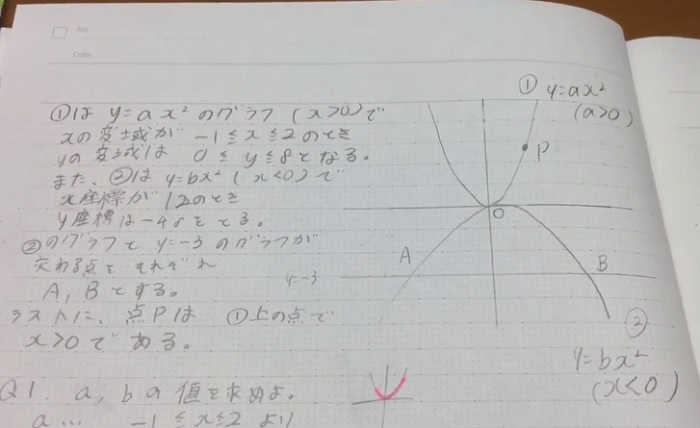 No.
Date
① y=ax²
(a>0)
①は y=ax² のグラフ (x>0)で
xの変域が -1≦x≦2 のとき
yの変域は 0≦y≦8となる。
また、②は y=bx² (x<0)で
x座標が 12のとき
y座標は-48をとる。
②のグラフと y=-3 のグラフが
交わる点をそれぞれ
A, Bとする。
ラストに、点Pは ①上の点で
x>0である。
P
O
A
B
y=-3
②
y=bx²
(x<0)
Q1. a, bの値を求めよ。
a... -1≦x≦2 より